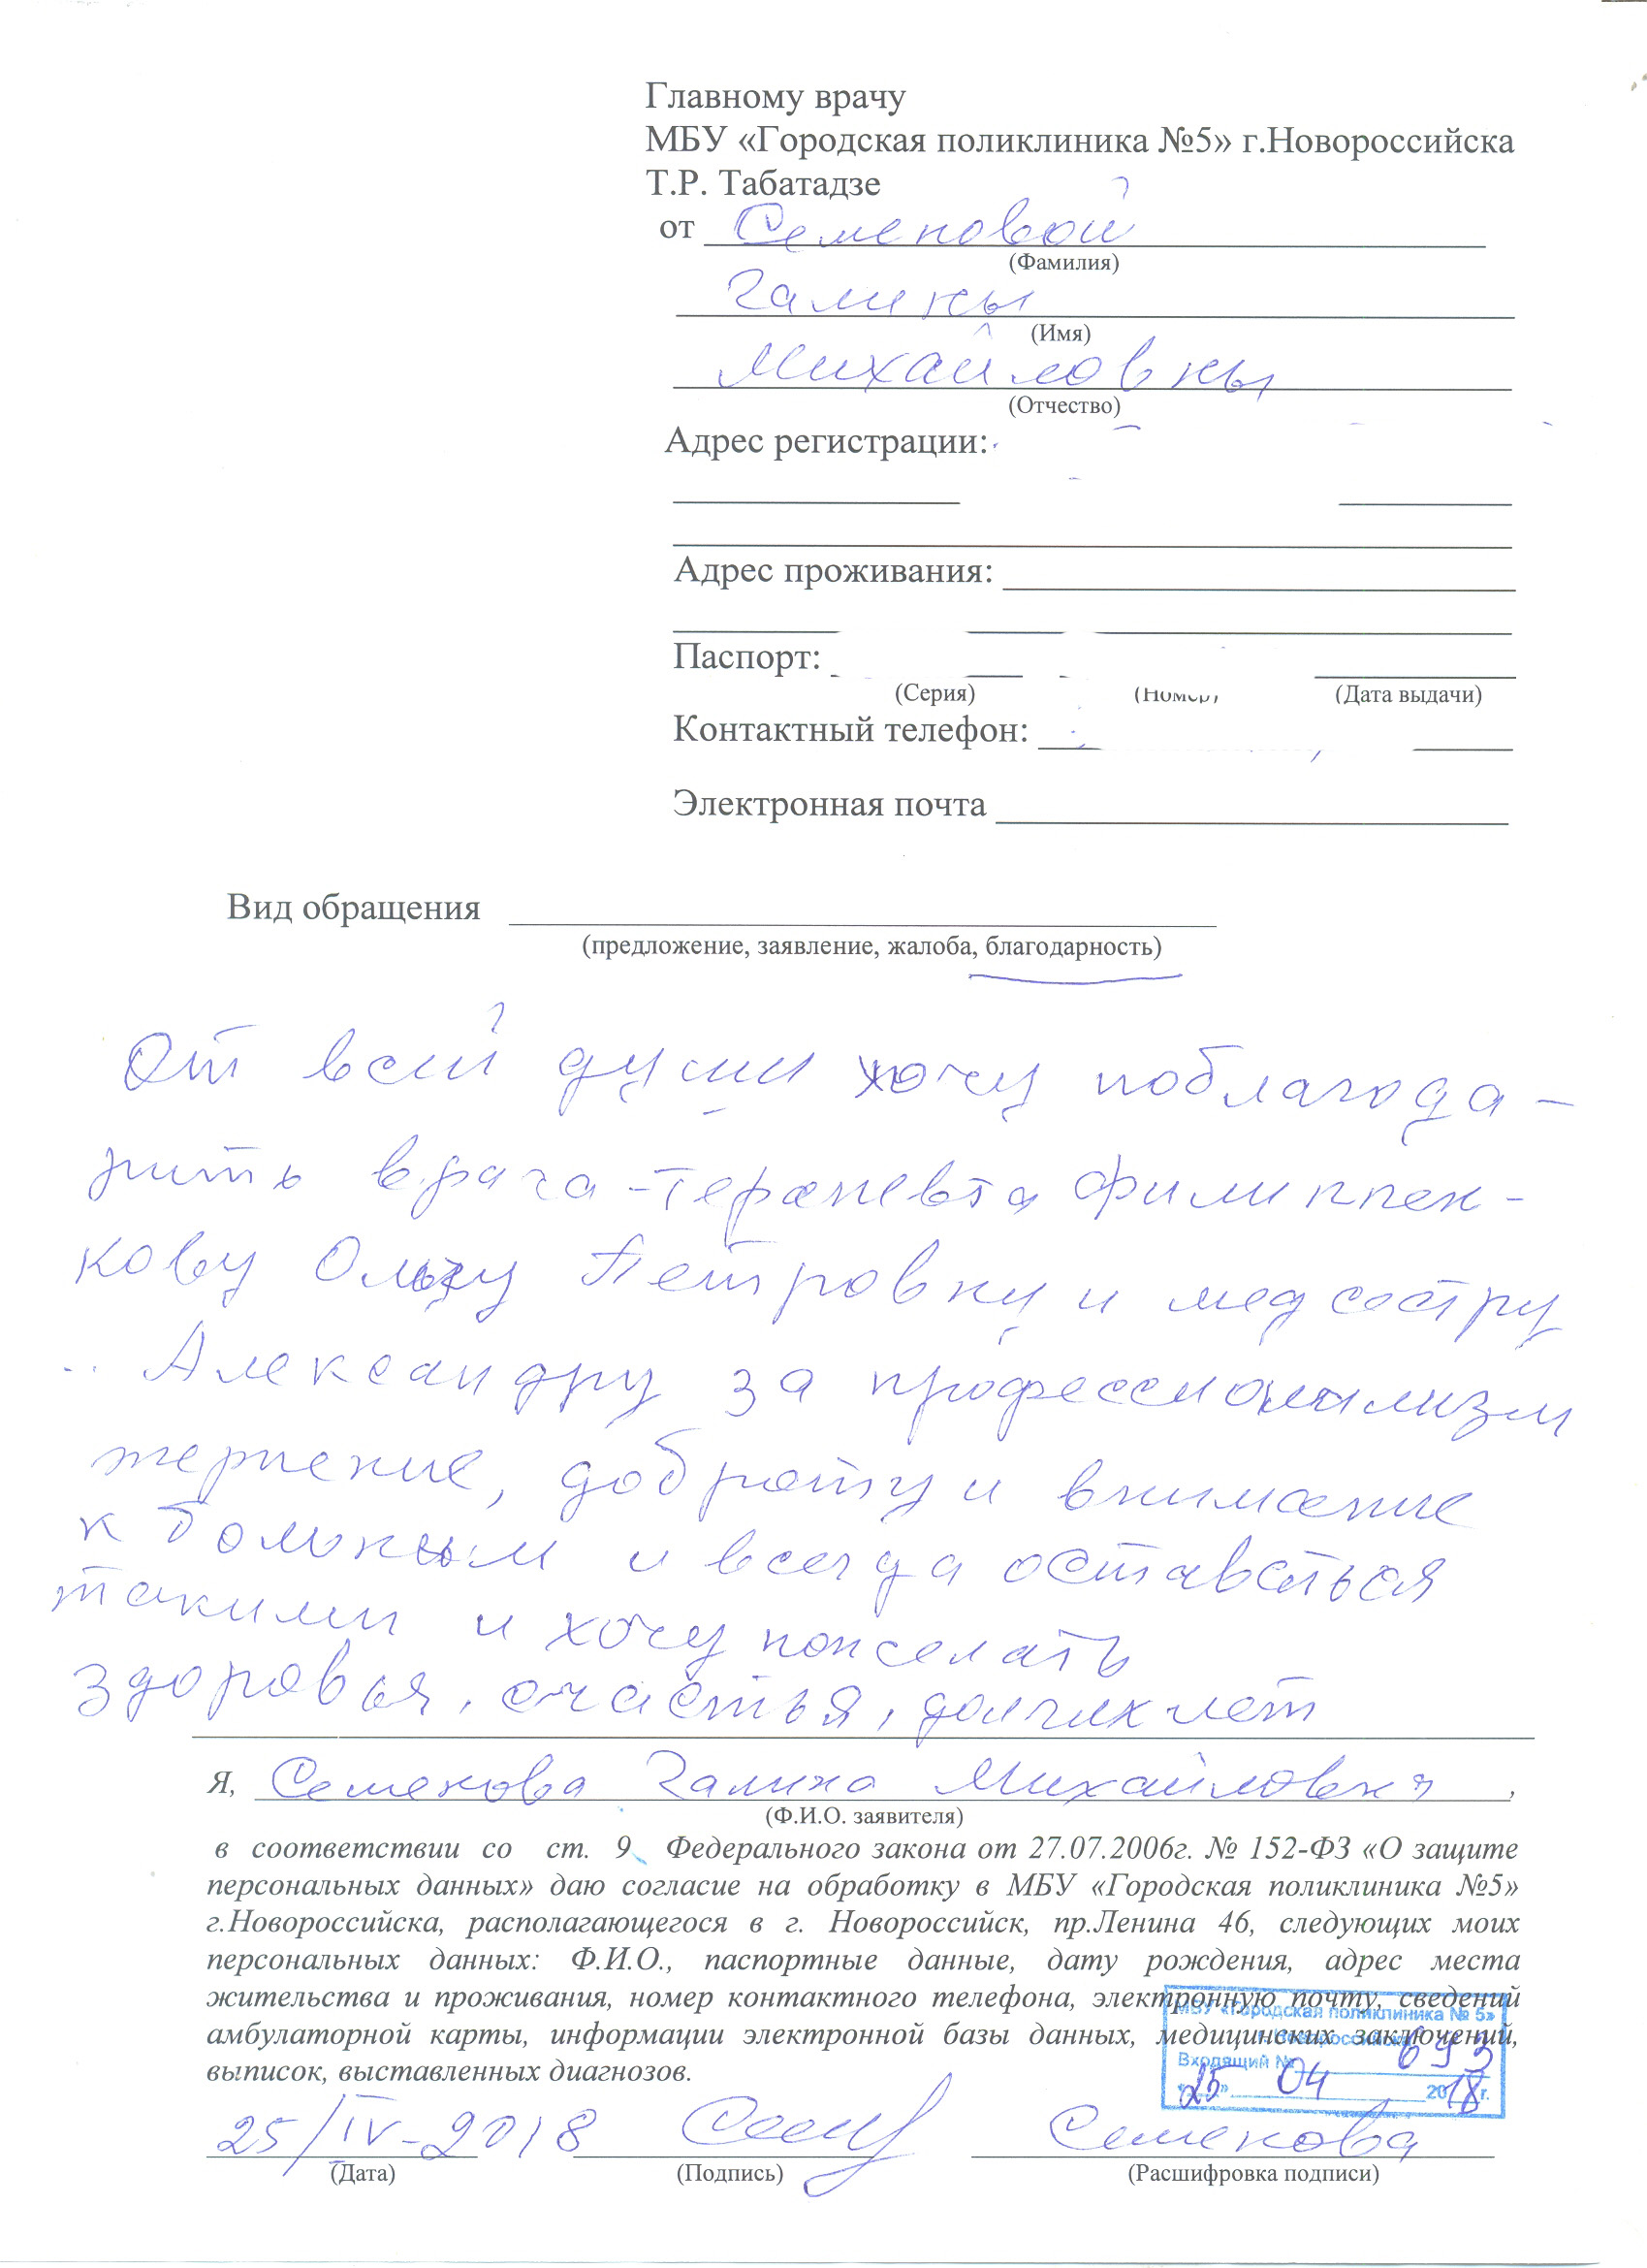 Главному врачу
МБУ «Городская поликлиника №5» г.Новороссийска
Т.Р. Табатадзе
от Семеновой
(Фамилия)
Галины
(Имя)
Михайловны
(Отчество)
Адрес регистрации:
Адрес проживания:
Паспорт:
(Серия) (Номер) (Дата выдачи)
Контактный телефон:
Электронная почта
Вид обращения
(предложение, заявление, жалоба, благодарность)
От всей души хочу поблагода-
рить врача-терапевта Филиппен-
кову Ольгу Петровну и медсестру
Александру за профессионализм
терпение, доброту и внимание
к больным и всегда оставаться
такими и хочу пожелать
здоровья, счастья, долгих лет
Я, Семенова Галина Михайловна,
(Ф.И.О. заявителя)
в соответствии со ст. 9 Федерального закона от 27.07.2006г. № 152-ФЗ «О защите
персональных данных» даю согласие на обработку в МБУ «Городская поликлиника №5»
г.Новороссийска, располагающегося в г. Новороссийск, пр.Ленина 46, следующих моих
персональных данных: Ф.И.О., паспортные данные, дату рождения, адрес места
жительства и проживания, номер контактного телефона, электронную почту, сведений
амбулаторной карты, информации электронной базы данных, медицинских заключений,
выписок, выставленных диагнозов.
МБУ «Городская поликлиника № 5»
г. Новороссийска
Входящий № 693
«25» 04 2018 г.
25/IV-2018 Семенова
(Дата) (Подпись) (Расшифровка подписи)